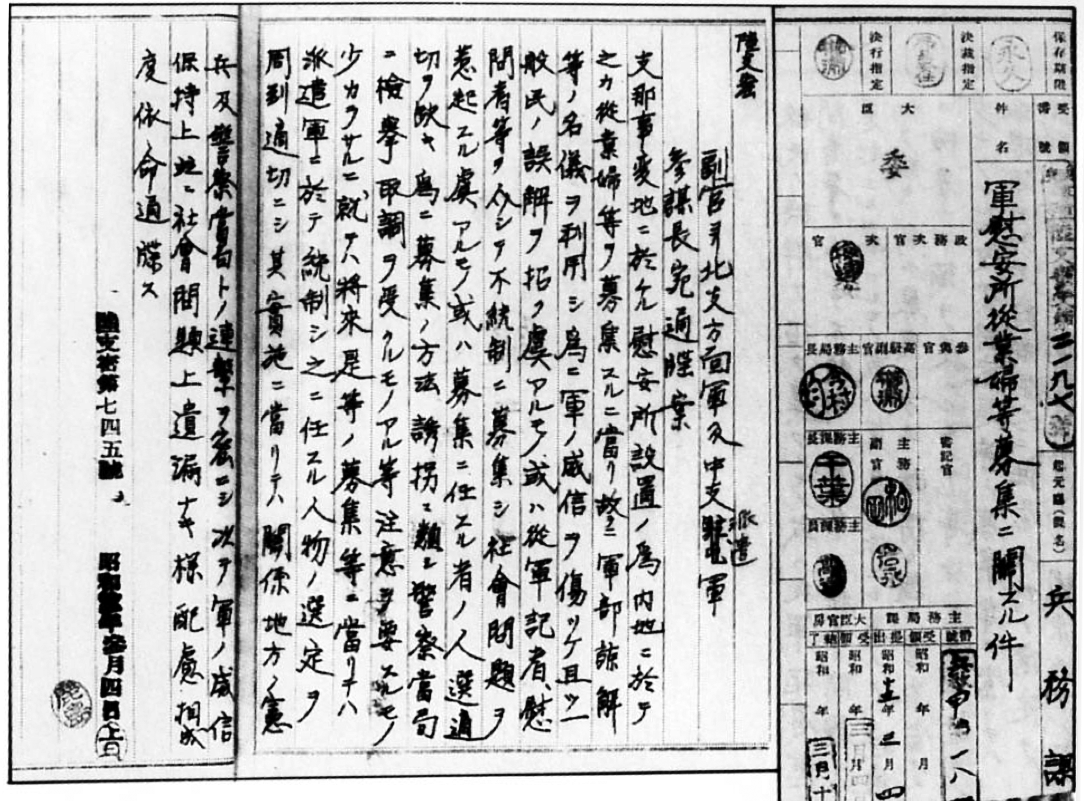 保存期限
永久
決裁指定
決行指定
受領番號
件名
軍慰安所從業婦等募集ニ關スル件
起元廳(課名)
兵務課
大臣
委
次官
政務次官
參與官
高級副官
主務局長
主務課長
千葉
主務課長
主務副官
書記官
大臣官房
主務局課
昭和
年
月
三月
陸支密
副官ヨリ北支方面軍及中支派遣軍
參謀長宛通牒案
支那事變地ニ於ケル慰安所設置ノ爲内地ニ於テ
之カ從業婦等ヲ募集スルニ當リ故ラニ軍部諒解
等ノ名儀ヲ利用シ爲ニ軍ノ威信ヲ傷ツケ且ツ一
般民ノ誤解ヲ招ク虞アルモノ或ハ從軍記者、慰
問者等ヲ介シテ不統制ニ募集シ社會問題ヲ
惹起スル虞アルモノ或ハ募集ニ任スル者ノ人選適
切ヲ欠キ爲ニ募集ノ方法誘拐ニ類シ警察當局
ニ檢擧取調ヲ受クルモノアル等注意ヲ要スルモノ
少カラサルニ就テハ將來是等ノ募集等ニ當リテハ
派遣軍ニ於テ統制シ之ニ任スル人物ノ選定ヲ
周到適切ニシ其實施ニ當リテハ關係地方ノ憲
兵及警察當局トノ連繋ヲ密ニシ次テ軍ノ威信
保持上並ニ社會問題上遺漏ナキ様配慮相成
度依命通牒ス
陸支密第七四五號 昭和拾參年參月四日